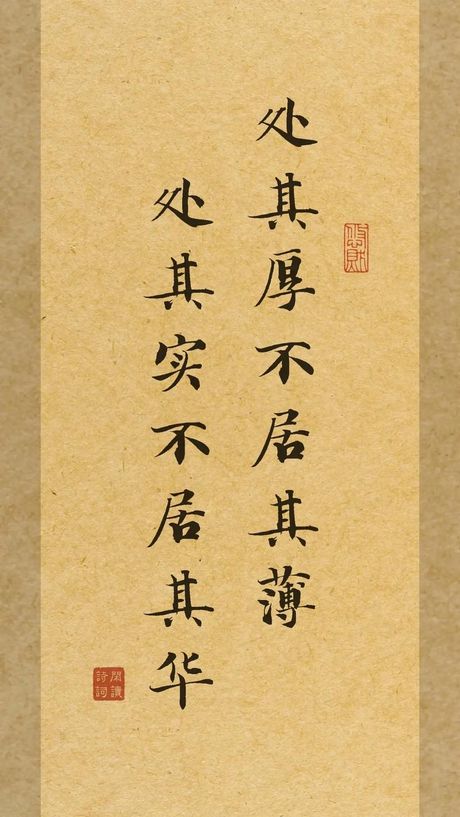 处其厚不居其薄
处其实不居其华
閑讀詩詞